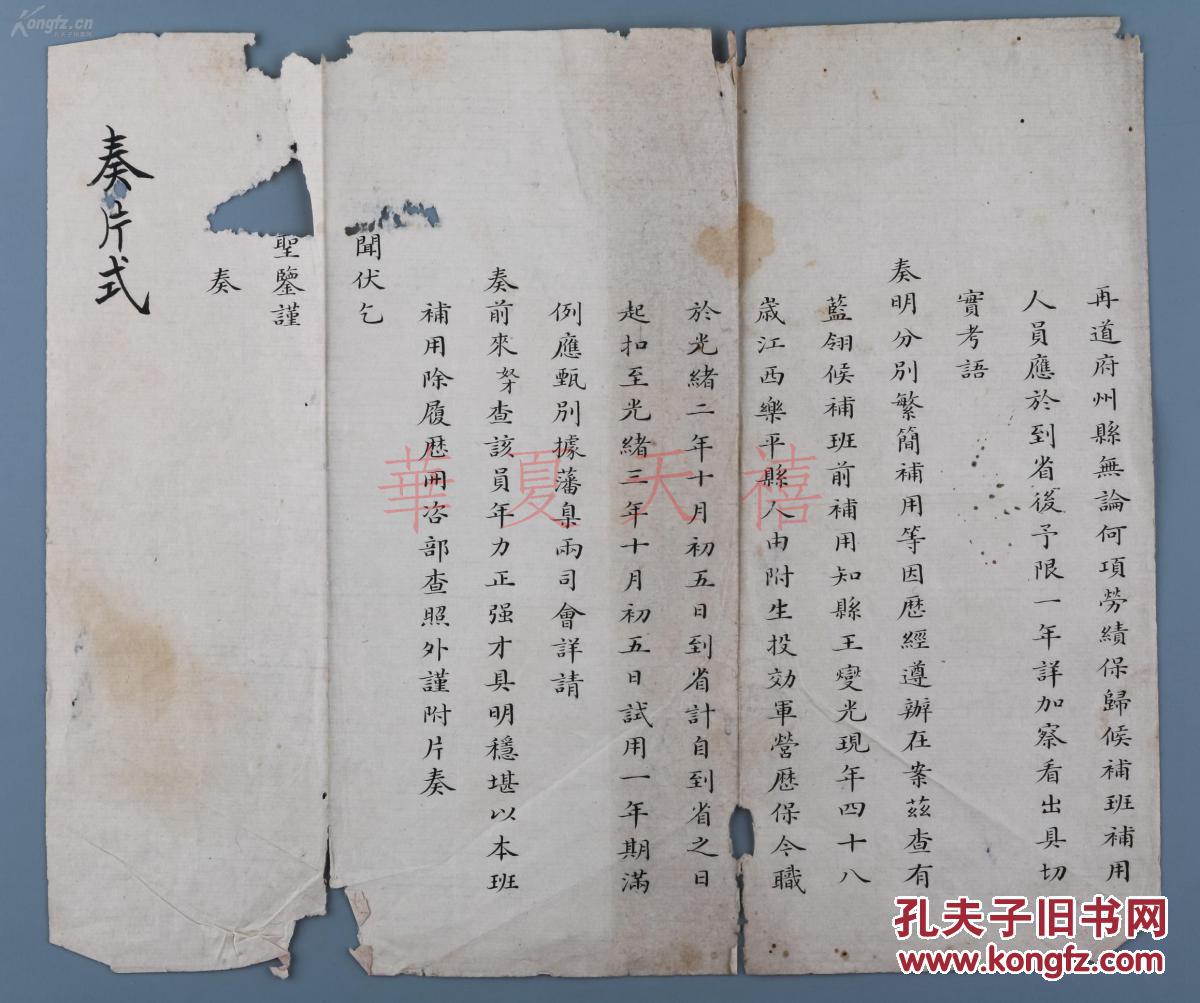 再道府州縣無論何項勞績保歸候補班補用
人員應於到省後予限一年詳加察看出具切
實考語
奏明分別繁簡補用等因歷經遵辦在案茲查有
藍翎候補班前補用知縣王燮光現年四十八
歲江西樂平縣人由附生投効軍營歷保今職
於光緒二年十月初五日到省計自到省之日
起扣至光緒三年十月初五日試用一年期滿
例應甄別據藩臬兩司會詳請
奏前來奴才查該員年力正强才具明穩堪以本班
補用除履歷冊咨部查照外謹附片奏
聞伏乞
聖鑒謹
奏
奏片式
華夏天禧
Kongfz.cn
孔夫子旧书网
孔夫子旧书网
www.kongfz.com